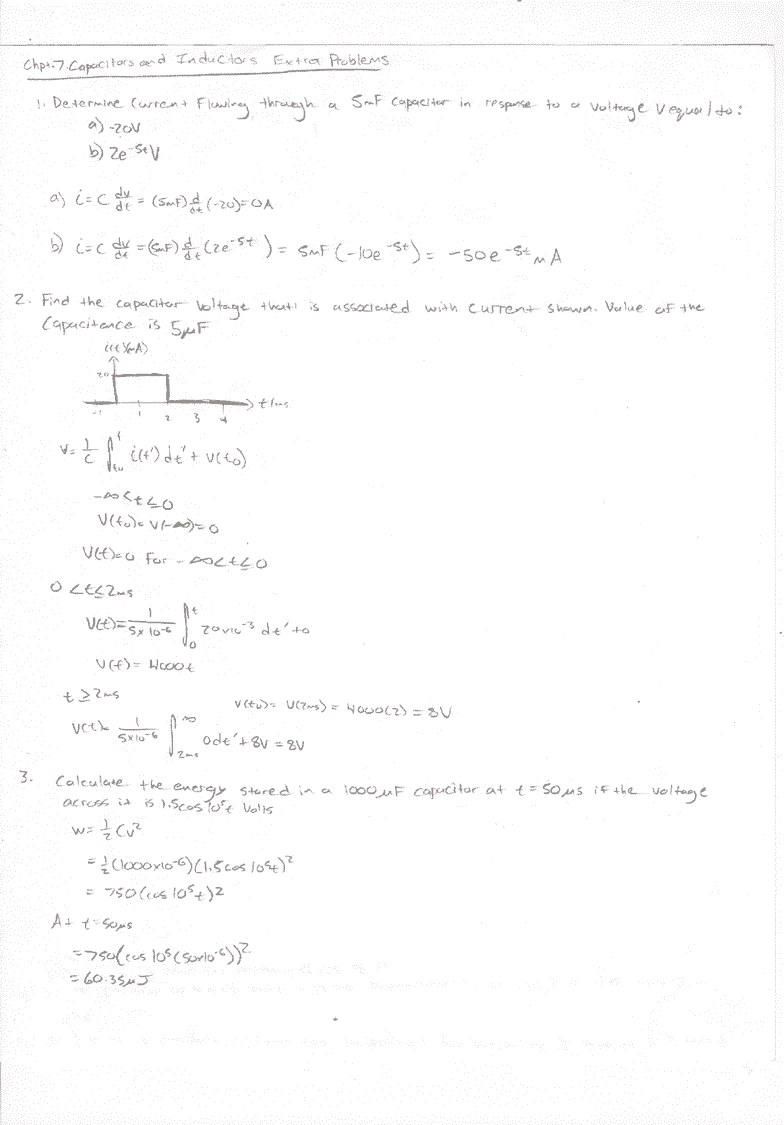 Chpt.7. Capacitors and Inductors Extra Problems
1. Determine Current Flowing through a 5mF capacitor in response to a voltage v equal to:
a) -20V
b) 2e^-5t V
a) i = C dv/dt = (5mF) d/dt (-20) = 0A
b) i = C dv/dt = (5mF) d/dt (2e^-5t) = 5mF (-10e^-5t) = -50e^-5t mA
2. Find the capacitor voltage that is associated with current shown. Value of the
Capacitance is 5μF
i(t)(mA)
20
-1 1 2 3 4 t(ms
V = 1/C ∫_to^t i(t') dt' + v(to)
-∞<t≤0
V(to) = V(-∞) = 0
V(t)=0 for -∞<t≤0
0<t≤2ms
V(t) = 1/5x10^-6 ∫_0^t 20x10^-3 dt' + 0
V(t) = 4000t
t ≥ 2ms
V(to) = V(2ms) = 4000(2) = 8V
V(t) = 1/5x10^-6 ∫_2ms^∞ 0dt' + 8V = 8V
3. Calculate the energy stored in a 1000μF capacitor at t = 50μs if the voltage
across it is 1.5cos10^5t Volts
W = 1/2 Cv^2
= 1/2 (1000x10^-6)(1.5cos10^5t)^2
= 750(cos 10^5t)2
At t=50μs
= 750(cos 10^5(50x10^-6))^2
= 60.35μJ